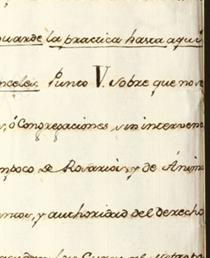 guarde la practica hasta aquí
Punto V. sobre que no se
ó Congregaciones sin interven
poco de Rosarios, y de Ánim
y authoridad del derecho